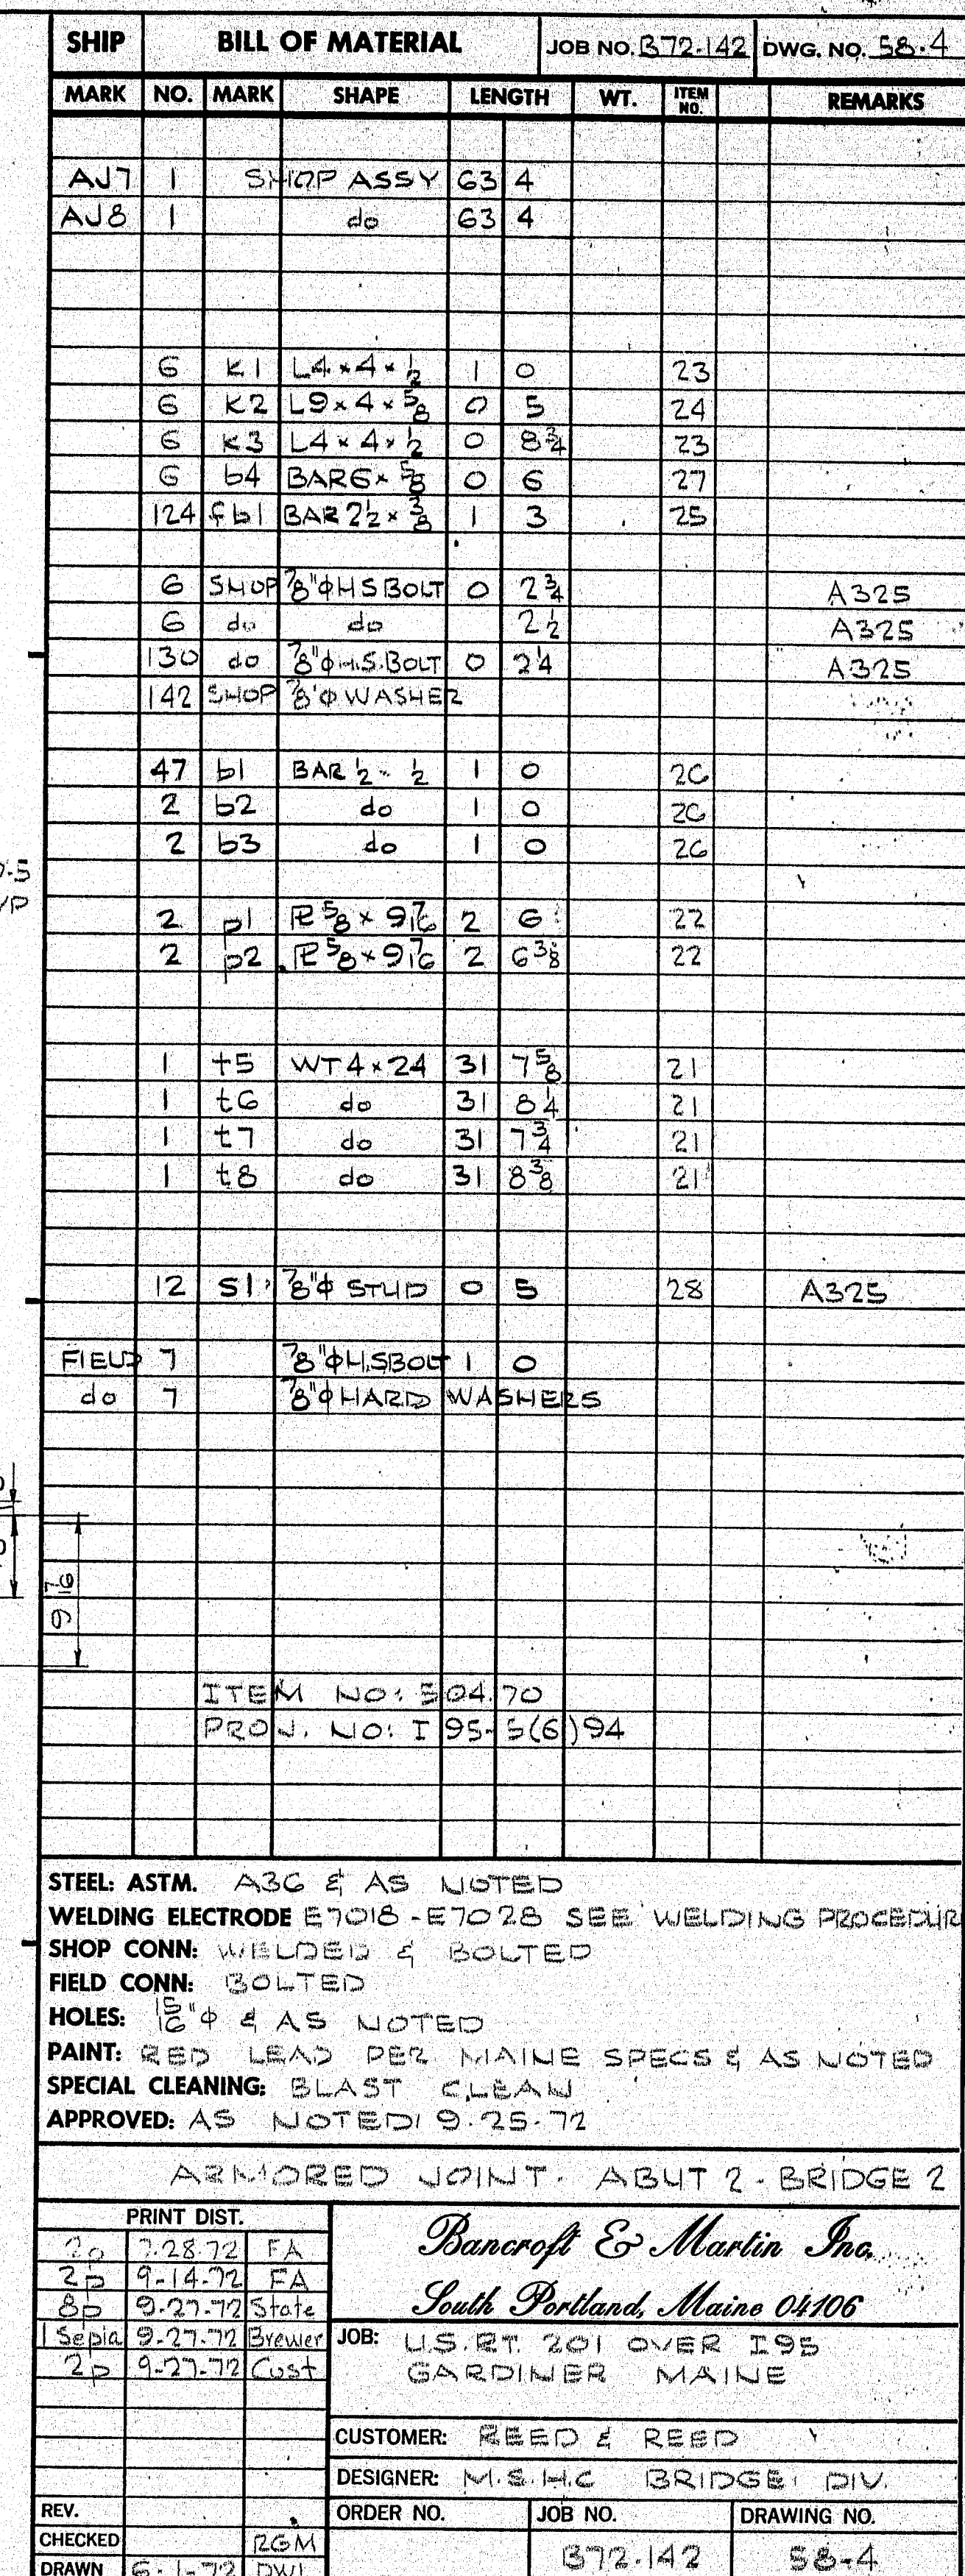 SHIP BILL OF MATERIAL JOB NO. B72-142 DWG. NO. 58-4
MARK NO. MARK SHAPE LENGTH WT. ITEM NO. REMARKS
AJ7 1 SHOP ASSY 63 4
AJ8 1 do 63 4
6 K1 L4×4×1/2 1 0 23
6 K2 L9×4×5/8 0 5 24
6 K3 L4×4×1/2 0 8 3/4 23
6 b4 BAR 6×5/8 0 6 27
124 fb1 BAR 2 1/2×3/8 1 3 25
6 SHOP 7/8"ϕ H S BOLT 0 2 3/4 A325
6 do do 2 1/2 A325
130 do 7/8"ϕ H.S. BOLT 0 2 1/4 A325
142 SHOP 7/8"ϕ WASHER
47 b1 BAR 1/2 - 1/2 1 0 26
2 b2 do 1 0 26
2 b3 do 1 0 26
2 p1 PL 5/8 × 9 7/16 2 6 22
2 p2 PL 5/8 × 9 7/16 2 6 3/8 22
1 t5 WT 4×24 31 7 5/8 21
1 t6 do 31 8 1/4 21
1 t7 do 31 7 3/4 21
1 t8 do 31 8 3/8 21
12 S1 7/8"ϕ STUD 0 5 28 A325
FIELD 7 7/8"ϕ H.S BOLT 1 0
do 7 7/8"ϕ HARD WASHERS
9 7/16
ITEM NO: 504.70
PROJ. NO: I 95-5(6)94
STEEL: ASTM. A36 & AS NOTED
WELDING ELECTRODE E7018-E7028 SEE WELDING PROCEDUR
SHOP CONN: WELDED & BOLTED
FIELD CONN: BOLTED
HOLES: 15/16"ϕ & AS NOTED
PAINT: RED LEAD PER MAINE SPECS & AS NOTED
SPECIAL CLEANING: BLAST CLEAN
APPROVED: AS NOTED 9-25-72
ARMORED JOINT - ABUT 2 - BRIDGE 2
PRINT DIST.
2p 7.28.72 FA
2p 9-14-72 FA
8p 9-27-72 State
1 Sepia 9-27-72 Brewer
2p 9-27-72 Cust
Bancroft & Martin Inc.
South Portland, Maine 04106
JOB: U.S. RT. 201 OVER I95
GARDINER MAINE
CUSTOMER: REED & REED
DESIGNER: M.S.H.C BRIDGE DIV.
REV. ORDER NO. JOB NO. DRAWING NO.
CHECKED RGM B72-142 58-4
DRAWN 6-1-72